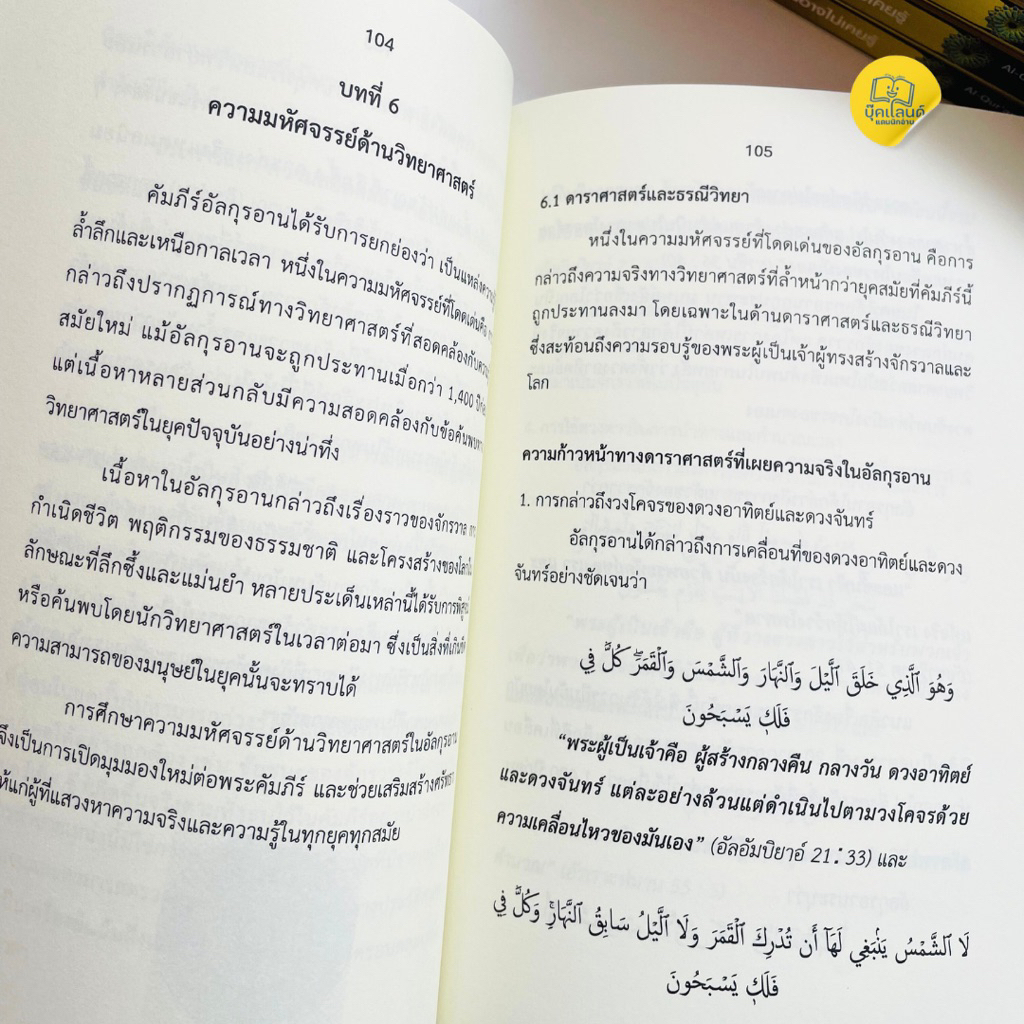 104
บทที่ 6
ความมหัศจรรย์ด้านวิทยาศาสตร์
คัมภีร์อัลกุรอานได้รับการยกย่องว่า เป็นแหล่ง
ล้ำลึกและเหนือกาลเวลา หนึ่งในความมหัศจรรย์ที่โดดเด่นคือ
กล่าวถึงปรากฏการณ์ทางวิทยาศาสตร์ที่สอดคล้องกับ
สมัยใหม่ แม้อัลกุรอานจะถูกประทานเมื่อกว่า 1,400
แต่เนื้อหาหลายส่วนกลับมีความสอดคล้องกับข้อค้นพบ
วิทยาศาสตร์ในยุคปัจจุบันอย่างน่าทึ่ง
เนื้อหาในอัลกุรอานกล่าวถึงเรื่องราวของจักรวาล
กำเนิดชีวิต พฤติกรรมของธรรมชาติ และโครงสร้างของโลก
ลักษณะที่ลึกซึ้งและแม่นยำ หลายประเด็นเหล่านี้ได้รับการ
หรือค้นพบโดยนักวิทยาศาสตร์ในเวลาต่อมา ซึ่งเป็นสิ่งที่
ความสามารถของมนุษย์ในยุคนั้นจะทราบได้
การศึกษาความมหัศจรรย์ด้านวิทยาศาสตร์ในอัลกุรอาน
จึงเป็นการเปิดมุมมองใหม่ต่อพระคัมภีร์ และช่วยเสริมสร้าง
ให้แก่ผู้ที่แสวงหาความจริงและความรู้ในทุกยุคทุกสมัย
บุ๊คแลนด์
แดนนักอ่าน
105
6.1 ดาราศาสตร์และธรณีวิทยา
หนึ่งในความมหัศจรรย์ที่โดดเด่นของอัลกุรอาน คือการ
กล่าวถึงความจริงทางวิทยาศาสตร์ที่ล้ำหน้ากว่ายุคสมัยที่คัมภีร์นี้
ถูกประทานลงมา โดยเฉพาะในด้านดาราศาสตร์และธรณีวิทยา
ซึ่งสะท้อนถึงความรอบรู้ของพระผู้เป็นเจ้าผู้ทรงสร้างจักรวาลและ
โลก
ความก้าวหน้าทางดาราศาสตร์ที่เผยความจริงในอัลกุรอาน
1. การกล่าวถึงวงโคจรของดวงอาทิตย์และดวงจันทร์
อัลกุรอานได้กล่าวถึงการเคลื่อนที่ของดวงอาทิตย์และดวง
จันทร์อย่างชัดเจนว่า
وَهُوَ ٱلَّذِي خَلَقَ ٱلَّيۡلَ وَٱلنَّهَارَ وَٱلشَّمۡسَ وَٱلۡقَمَرَۖ كُلّٞ فِي
فَلَكٖ يَسۡبَحُونَ
“พระผู้เป็นเจ้าคือ ผู้สร้างกลางคืน กลางวัน ดวงอาทิตย์
และดวงจันทร์ แต่ละอย่างล้วนแต่ดำเนินไปตามวงโคจรด้วย
ความเคลื่อนไหวของมันเอง” (อัลอัมบิยาอ์ 21:33) และ
لَا ٱلشَّمۡسُ يَنۢبَغِي لَهَآ أَن تُدۡرِكَ ٱلۡقَمَرَ وَلَا ٱلَّيۡلُ سَابِقُ ٱلنَّهَارِۚ وَكُلّٞ فِي
فَلَكٖ يَسۡبَحُونَ